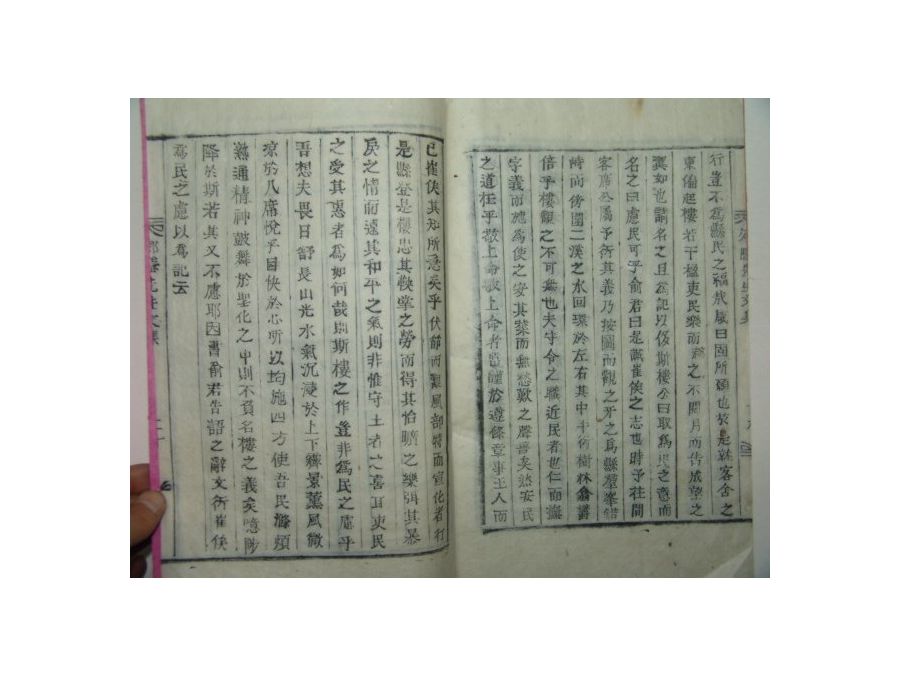 行豈不爲縣民之福哉咸曰固所願也於是就客舍之
東偏起樓若干楹吏民樂而
之不閱月而告成望之
翼如也請名之且爲記以
斯樓公曰取爲民之意而
名之曰慮民可乎俞君曰是誠崔侯之志也時予在閒
客席
屬予衍其義乃按圖而觀之
之爲縣
峯
峙而
圍二溪之水回環於左右其中平衍樹林
倍乎樓觀之不可無也夫守令之職近民者也仁而
字義而
爲使之安其業而無愁歎之聲
矣然安民
之道在乎敬上命敬上命者
謹於遵條章事王人而
已崔侯其知所
矣乎伏節而觀風部特而宣化者行
是縣登是樓忠其鞅掌之勞而得其怡曠之樂弭其暴
戾之情而遠其和平之氣則非惟守土者之喜耳吏民
之愛其惠者爲如何哉則斯樓之作豈非爲民之慮乎
吾想夫畏日舒長山光水氣沉浸於上下
景薰風微
凉於几席悅乎目快於心所以均施四方使吾民
煩
熱通精神鼓舞於聖化之中則不負名樓之義矣噫陟
降於斯若其又不慮耶因書俞君告語之辭文
崔侯
爲民之慮以爲記云